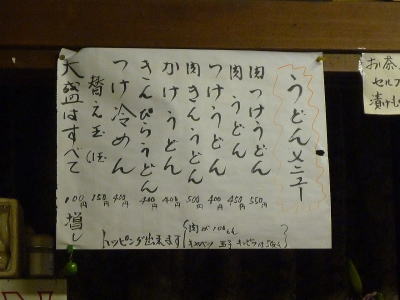 うどんメニュー
肉つけうどん 550円
肉うどん 450円
つけうどん 400円
肉きんうどん 500円
かけうどん 400円
きんぴらうどん 400円
つけ冷めん 400円
替え玉 150円
大盛はすべて 100円 増し
トッピング出来ます
お茶
セルフ
漬けも